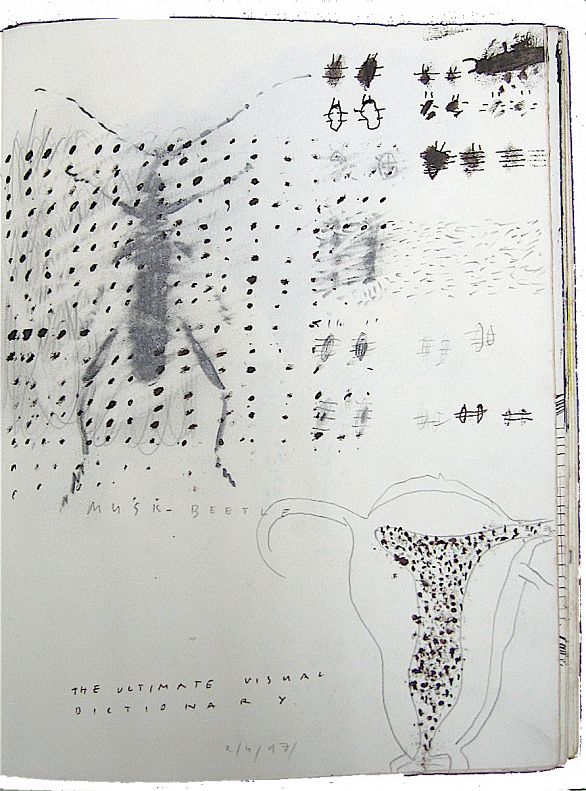 MUSK-BEETLE
THE ULTIMATE VISUAL
DICTIONARY.
2/4/17/